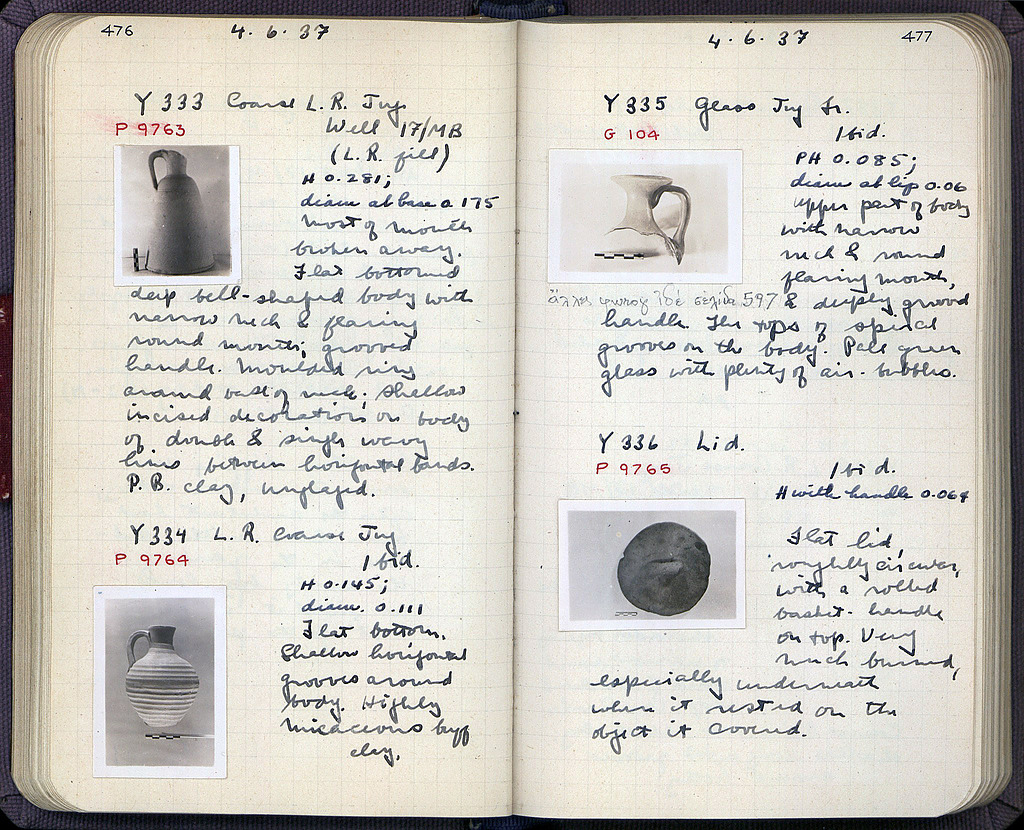 476
4. 6. 37
Y 333 Coarse L. R. Jug
P 9763
Well 17/MB
(L. R. fill)
H 0.281;
diam at base 0.175
Most of mouth
broken away.
Flat bottomed
deep bell-shaped body with
narrow neck & flaring
round mouth; grooved
handle. Moulded ring
around base of neck; shallow
incised decoration on body
of double & single wavy
lines between horizontal bands.
P. B. clay, unglazed.
Y 334 L. R. Coarse Jug
P 9764
Ibid.
H 0.145;
diam. 0.111
Flat bottom.
Shallow horizontal
grooves around
body. Highly
micaceous buff
clay.
4. 6. 37
477
Y 335 Glass Jug Fr.
G 104
Ibid.
PH 0.085;
diam at lip 0.06
Upper part of body
with narrow
neck & round
flaring mouth,
σελίδα 597 & deeply grooved
handle. The tops of spiral
grooves on the body. Pale green
glass with plenty of air-bubbles.
Y 336 Lid.
P 9765
Ibid.
H with handle 0.064
Flat lid,
roughly circular,
with a rolled
basket-handle
on top. Very
much burned,
especially underneath
where it rested on the
object it covered.